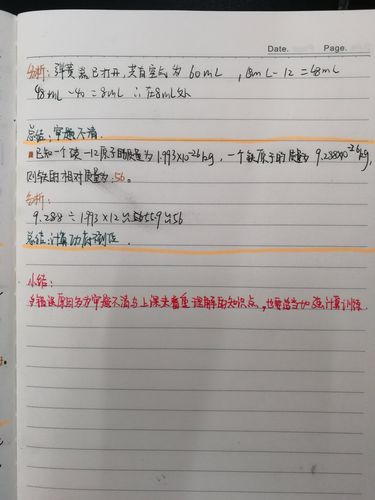 Date. Page.
分析: 弹簧夹已打开,共有空气为 60mL , 60mL-12=48mL
48mL-40=8mL ∴在8mL处
总结: 审题不清.
已知一个碳-12原子的质量为1.993×10-26kg, 一个铁原子的质量9.288×10-26kg,
则铁的相对质量为:56。
分析:
9.288÷1.993×12≈ ≈56
总结:计算功底不到位.
小结:
多错误原因多为审题不清与上课未着重理解的知识点,也要适当加强计算训练.